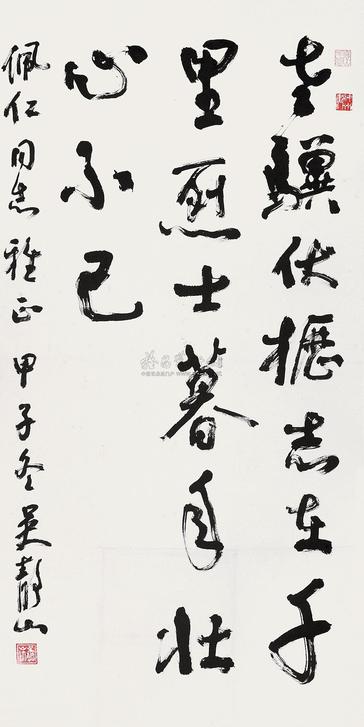 老骥伏枥志在千
里烈士暮年壮
心不已
佩仁同志雅正甲子冬吴静山